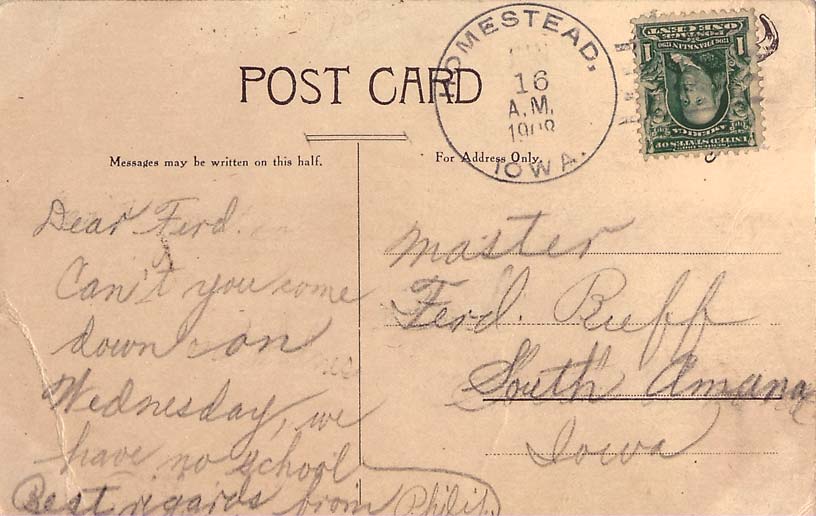 POST CARD
HOMESTEAD,
16
A.M.
1908
IOWA.
ONE CENT
1 1
UNITED STATES OF
AMERICA
Messages may be written on this half.
For Address Only.
Dear Ferd.
Can't you come
down on
Wednesday, we
have no school
Best regards from Philip.
Master
Ferd. Ruff
South Amana
Iowa